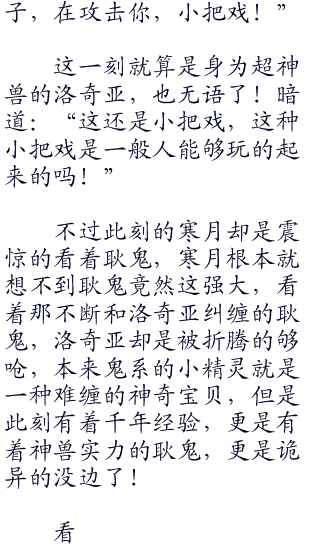 子，在攻击你，小把戏！”
这一刻就算是身为超神
兽的洛奇亚，也无语了！暗
道：“这还是小把戏，这种
小把戏是一般人能够玩的起
来的吗！”
不过此刻的寒月却是震
惊的看着耿鬼，寒月根本就
想不到耿鬼竟然这强大，看
着那不断和洛奇亚纠缠的耿
鬼，洛奇亚却是被折腾的够
呛，本来鬼系的小精灵就是
一种难缠的神奇宝贝，但是
此刻有着千年经验，更是有
着神兽实力的耿鬼，更是诡
异的没边了！
看